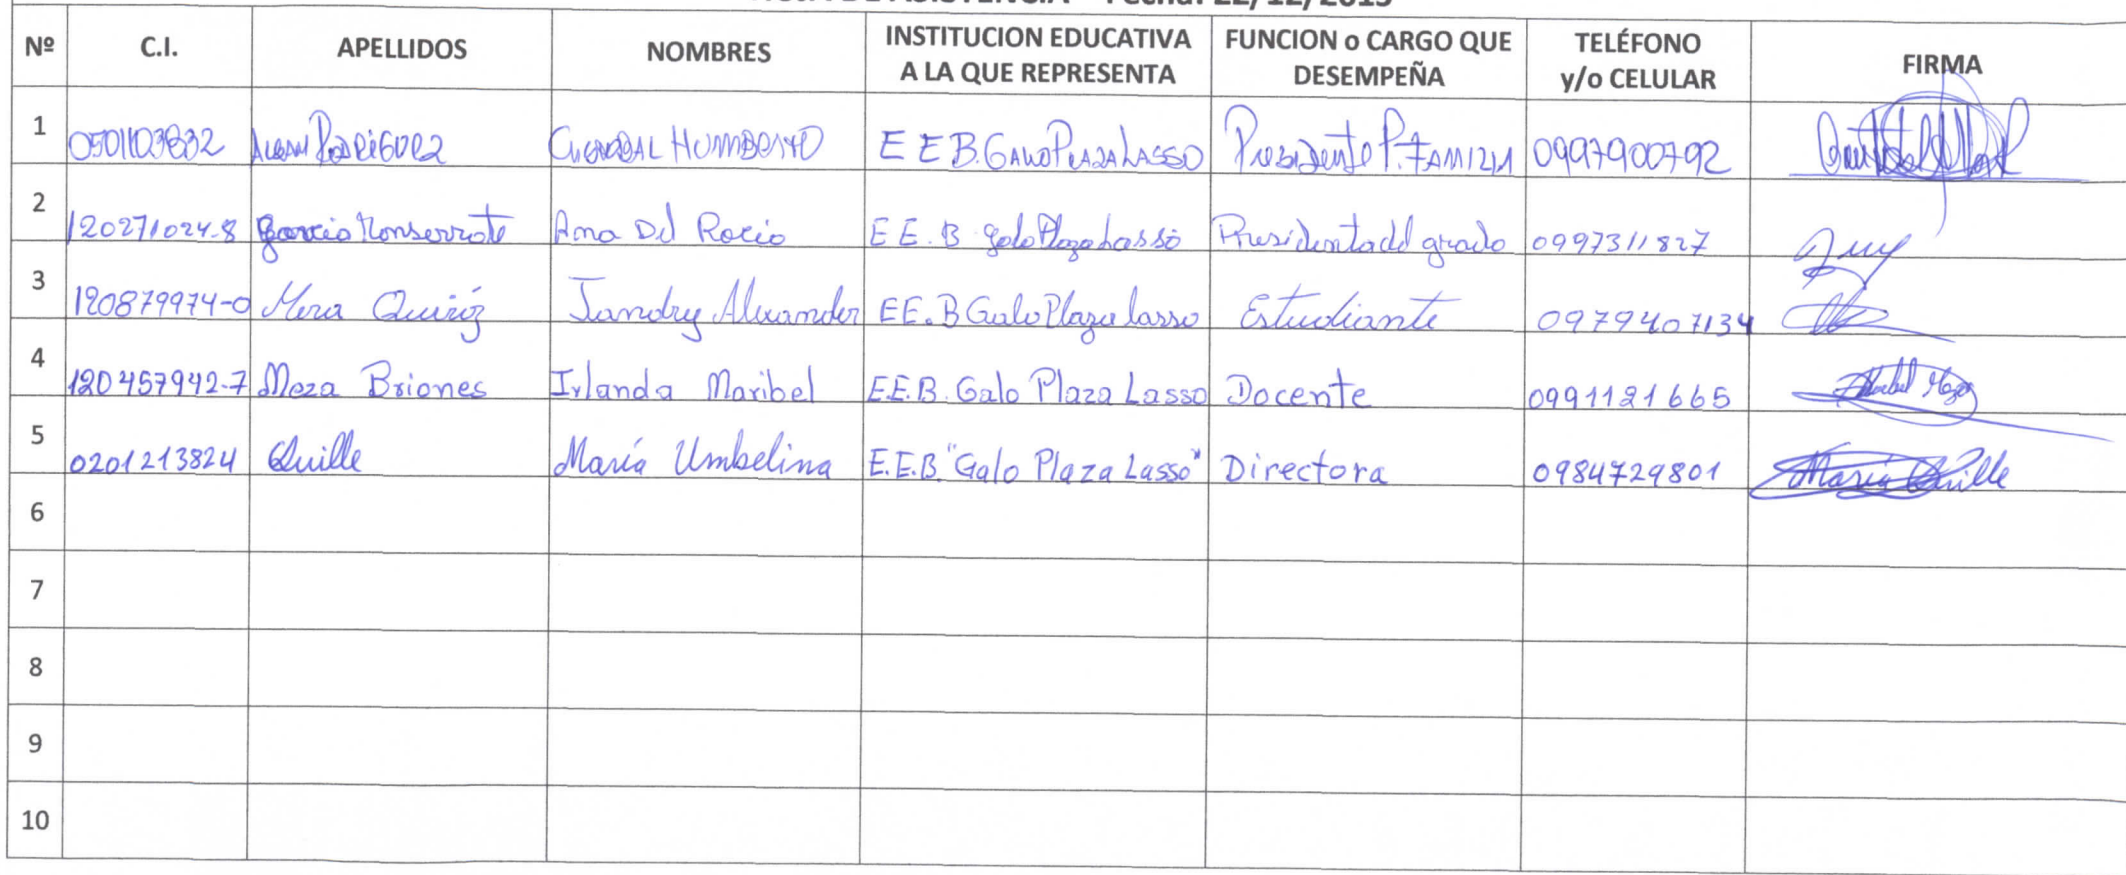 Fecha: 22/12/2015
Nº C.I. APELLIDOS NOMBRES INSTITUCION EDUCATIVA A LA QUE REPRESENTA FUNCION o CARGO QUE DESEMPEÑA TELÉFONO y/o CELULAR FIRMA
1 0501103832 Rodriguez HUMBERTO E E B. GALO PLAZA LASSO Presidente P. FAMILIA 0997900792
2 120271024-8 Garcia Monserrate Ana Del Rocio E E. B galo Plaza Lasso Presidenta del grado 0997311827
3 120879974-0 Mera Quiróz Jandry Alexander EE.B Galo Plaza lasso Estudiante 0979407134
4 120457942-7 Meza Briones Irlanda Maribel E.E.B. Galo Plaza Lasso Docente 0991121665
5 0201213824 Quille María Umbelina E.E.B. "Galo Plaza Lasso" Directora 0984729801 María Quille
6
7
8
9
10